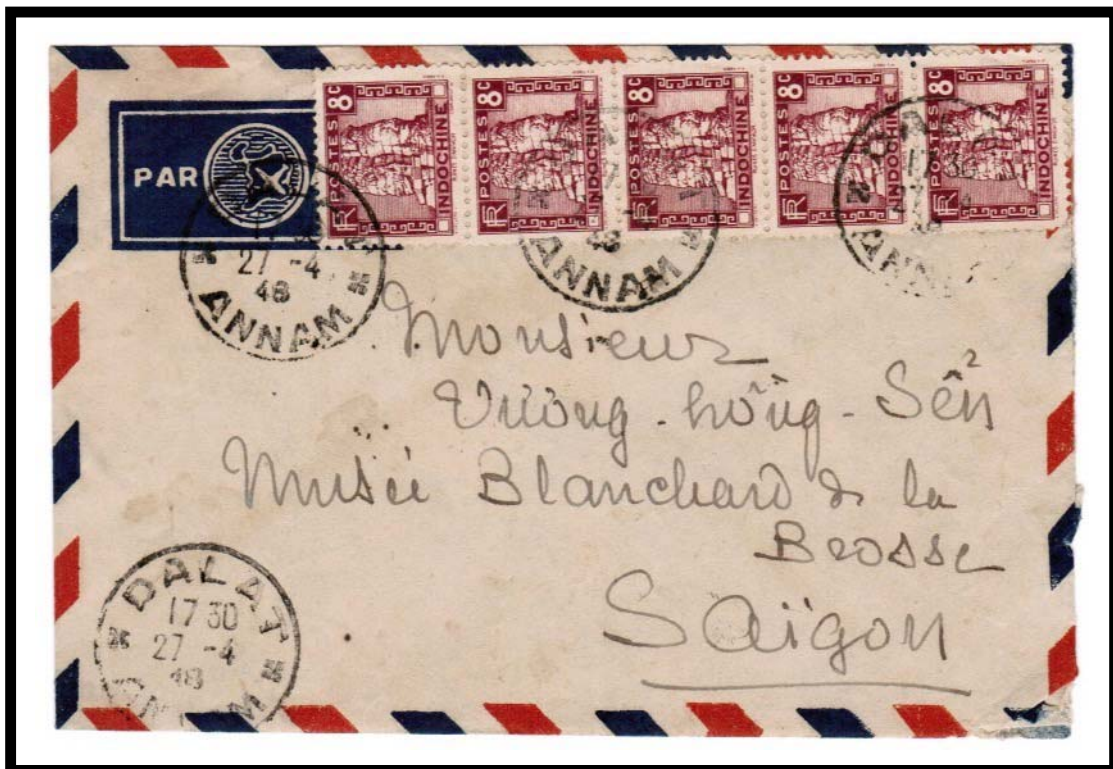 PAR
8c POSTES RF INDOCHINE
8c POSTES RF INDOCHINE
8c POSTES RF INDOCHINE
8c POSTES RF INDOCHINE
8c POSTES RF INDOCHINE
27 -4
48
ANNAM
48
ANNAM
17 30
27
Monsieur
Vương-hồng-Sển
Musée Blanchard de la
Brosse
Saïgon
DALAT
17 30
27 -4
48
ANNAM